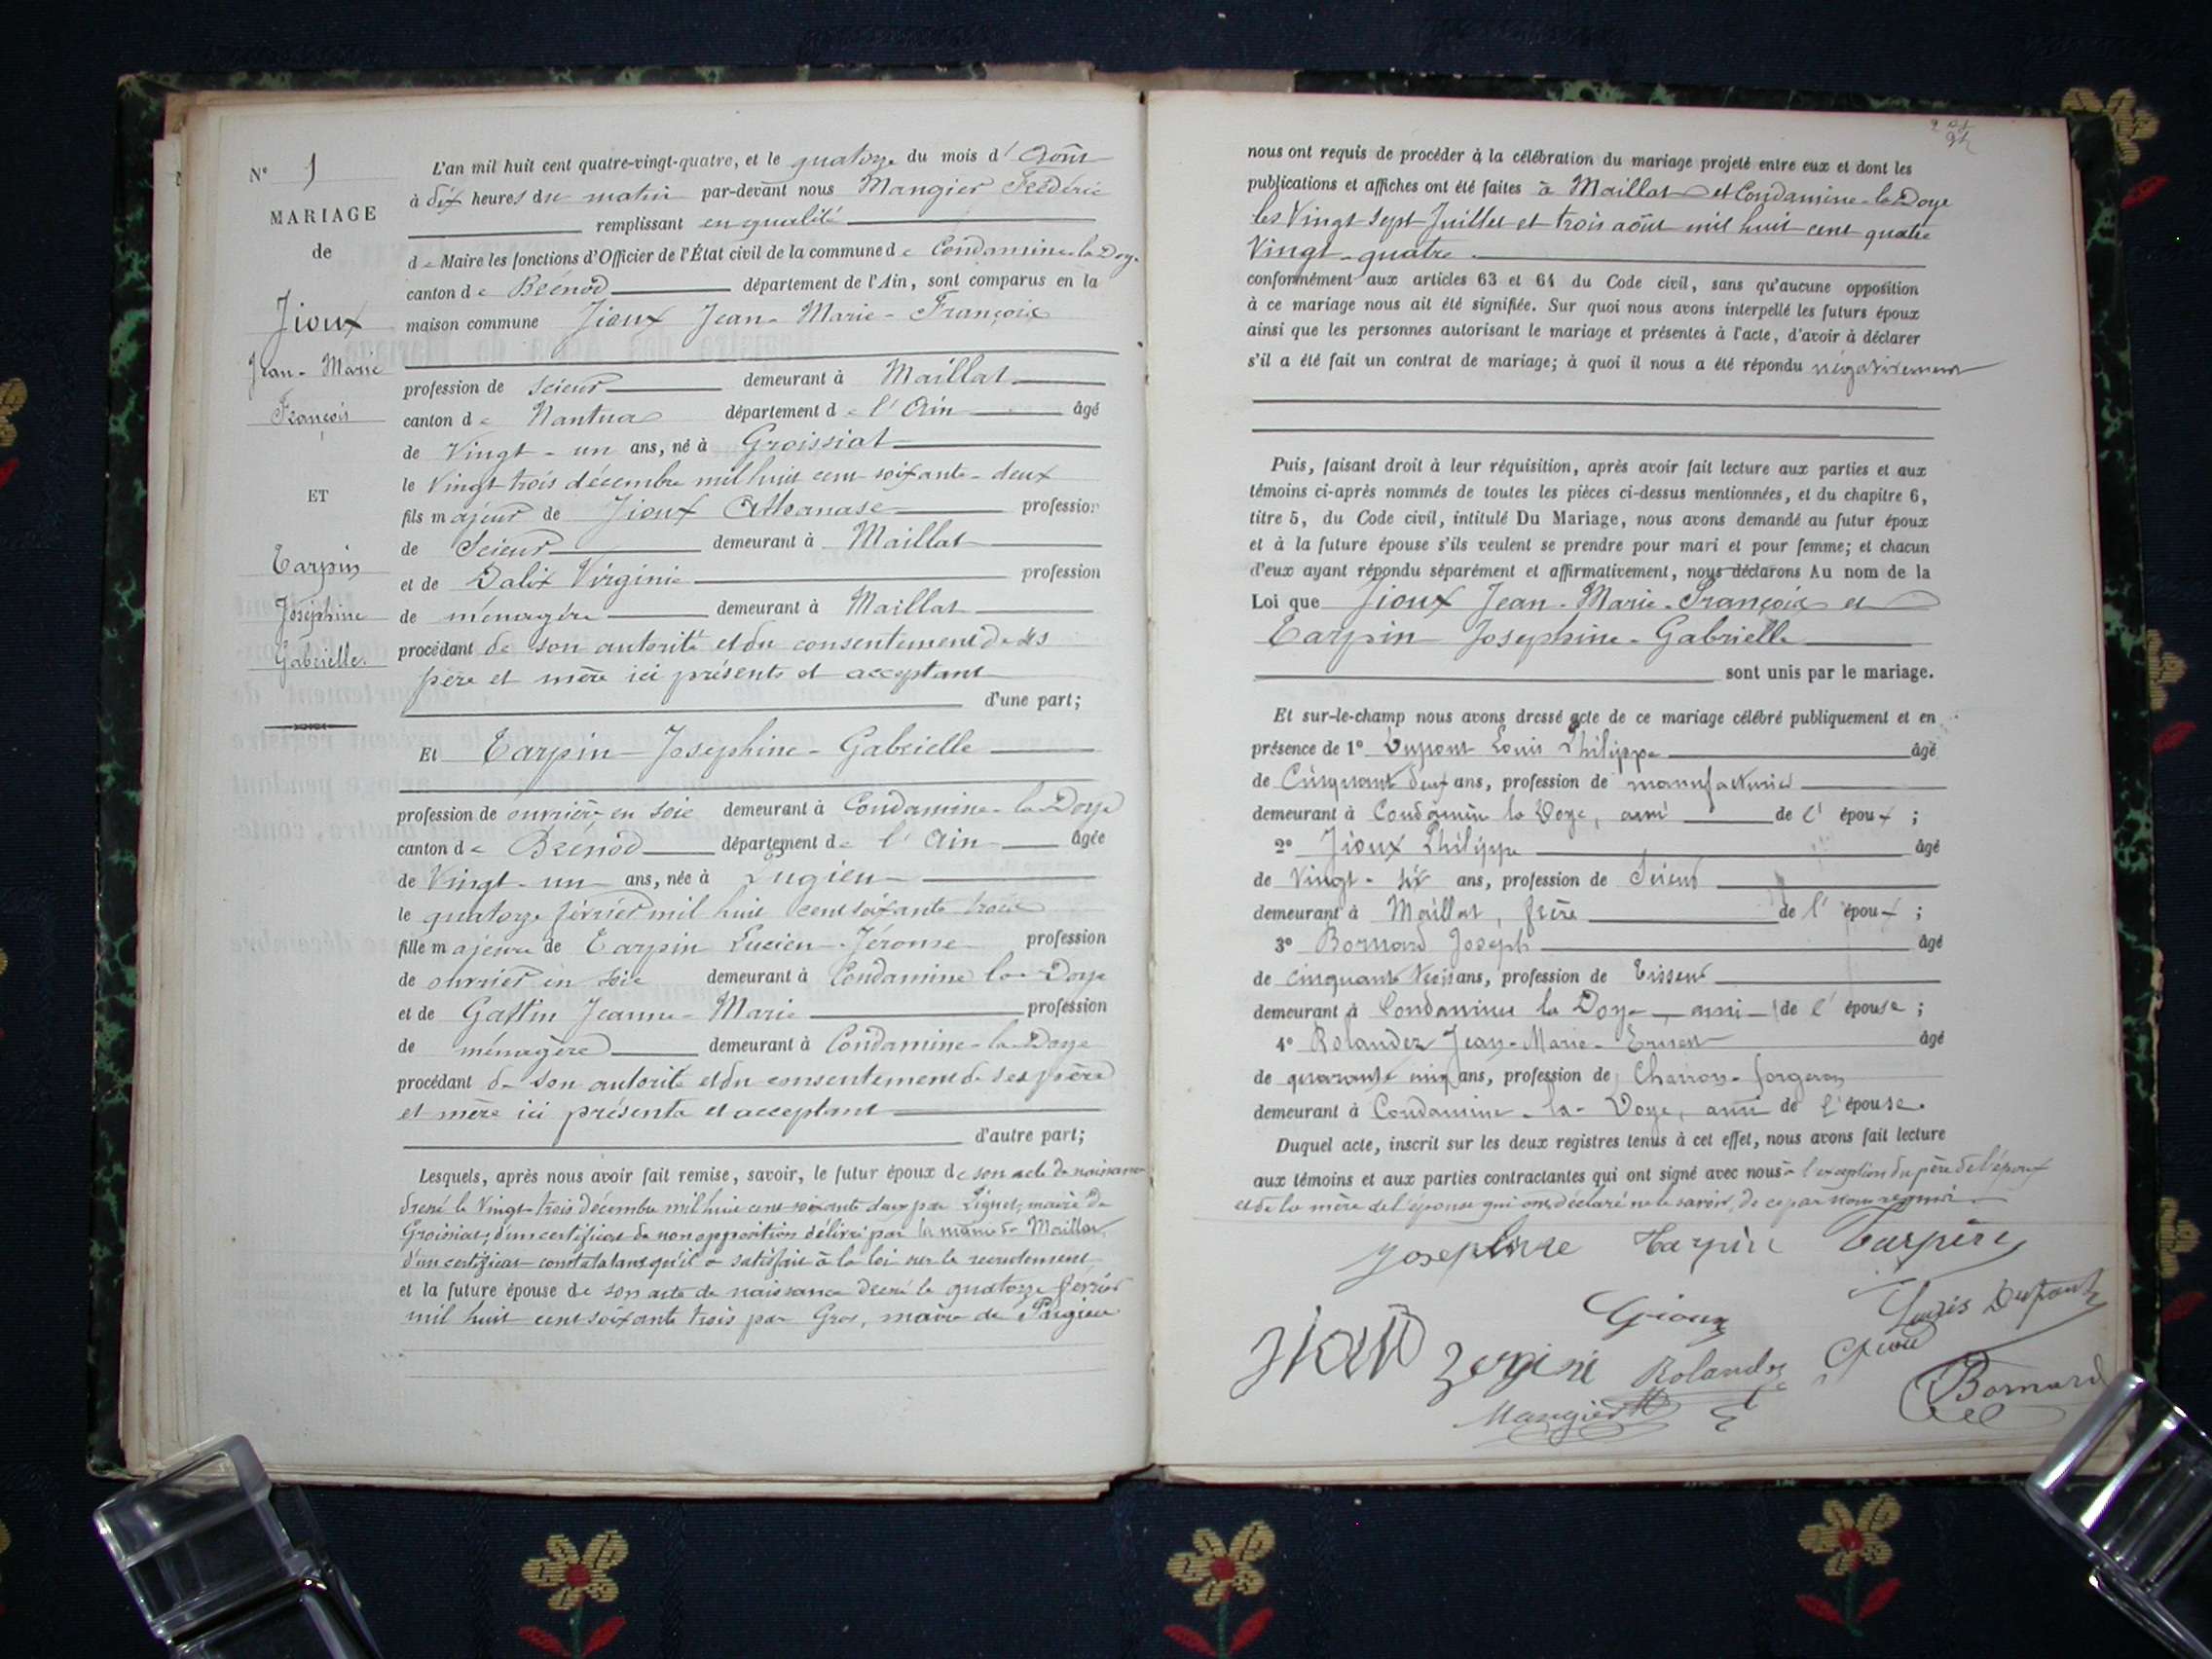 N° 1
MARIAGE
de
Jioux
Jean-Marie
François
ET
Tarpin
Joséphine
Gabrielle.
L'an mil huit cent quatre-vingt-quatre, et le quatorze du mois d'Août
à dix heures du matin par-devant nous Mangier Frédéric
remplissant en qualité
de Maire les fonctions d'Officier de l'État civil de la commune de Condamine-la-Doye
canton de Brénod département de l'Ain, sont comparus en la
maison commune Jioux Jean-Marie-François
profession de scieur demeurant à Maillat
canton de Nantua département de l'Ain âgé
de Vingt-un ans, né à Groissiat
le Vingt trois décembre mil huit cent soixante-deux
fils majeur de Jioux Athanase profession
de Scieur demeurant à Maillat
et de Dalix Virginie profession
de ménagère demeurant à Maillat
procédant de son autorité et du consentement de ses
père et mère ici présents et acceptant
d'une part;
Et Tarpin-Joséphine-Gabrielle
profession de ouvrière en soie demeurant à Condamine-la-Doye
canton de Brénod département de l'Ain âgée
de Vingt-un ans, née à Pugieu
le quatorze février mil huit cent soixante trois
fille majeure de Tarpin Lucien-Jérome profession
de ouvrier en soie demeurant à Condamine la-Doye
et de Gattin Jeanne-Marie profession
de ménagère demeurant à Condamine-la-Doye
procédant de son autorité et du consentement de ses père
et mère ici présents et acceptant
d'autre part;
Lesquels, après nous avoir fait remise, savoir, le futur époux de son acte de naissance
dressé le Vingt-trois Décembre mil huit cent soixante deux par maire de
Groissiat, d'un certificat de non opposition délivré par la mairie de Maillat,
d'un certificat constatatant qu'il a satisfait à la loi sur le recrutement
et la future épouse de son acte de naissance dressé le quatorze février
mil huit cent soixante trois par Gros, maire de Pugieu
nous ont requis de procéder à la célébration du mariage projeté entre eux et dont les
publications et affiches ont été faites à Maillat et Condamine-la-Doye
les Vingt-sept Juillet et trois août mil huit cent quatre
Vingt-quatre.
conformément aux articles 63 et 64 du Code civil, sans qu'aucune opposition
à ce mariage nous ait été signifiée. Sur quoi nous avons interpellé les futurs époux
ainsi que les personnes autorisant le mariage et présentes à l'acte, d'avoir à déclarer
s'il a été fait un contrat de mariage; à quoi il nous a été répondu négativement
Puis, faisant droit à leur réquisition, après avoir fait lecture aux parties et aux
témoins ci-après nommés de toutes les pièces ci-dessus mentionnées, et du chapitre 6,
titre 5, du Code civil, intitulé Du Mariage, nous avons demandé au futur époux
et à la future épouse s'ils veulent se prendre pour mari et pour femme; et chacun
d'eux ayant répondu séparément et affirmativement, nous déclarons Au nom de la
Loi que Jioux Jean-Marie-François et
Tarpin Josephine-Gabrielle
sont unis par le mariage.
Et sur-le-champ nous avons dressé acte de ce mariage célébré publiquement et en
présence de 1° Dupont Louis Philippe âgé
de Cinquante deux ans, profession de manufacturier
demeurant à Condamine la Doye, ami de l'époux;
2° Jioux Philippe âgé
de Vingt-six ans, profession de Scieur
demeurant à Maillat, frère de l'époux;
3° Bornard Joseph âgé
de cinquante trois ans, profession de Tisseur
demeurant à Condamine la Doye, ami de l'épouse;
4° Rolandez Jean-Marie-Ernest âgé
de quarante cinq ans, profession de Charron-forgeron
demeurant à Condamine-la-Doye, ami de l'épouse.
Duquel acte, inscrit sur les deux registres tenus à cet effet, nous avons fait lecture
aux témoins et aux parties contractantes qui ont signé avec nous à l'exception du père de l'époux
et de la mère de l'épouse qui ont déclaré ne le savoir, de ce par nous requis.
Josephine Tarpin Tarpin
Gioux Louis Dupont
Rolandez
Mangier Bornard